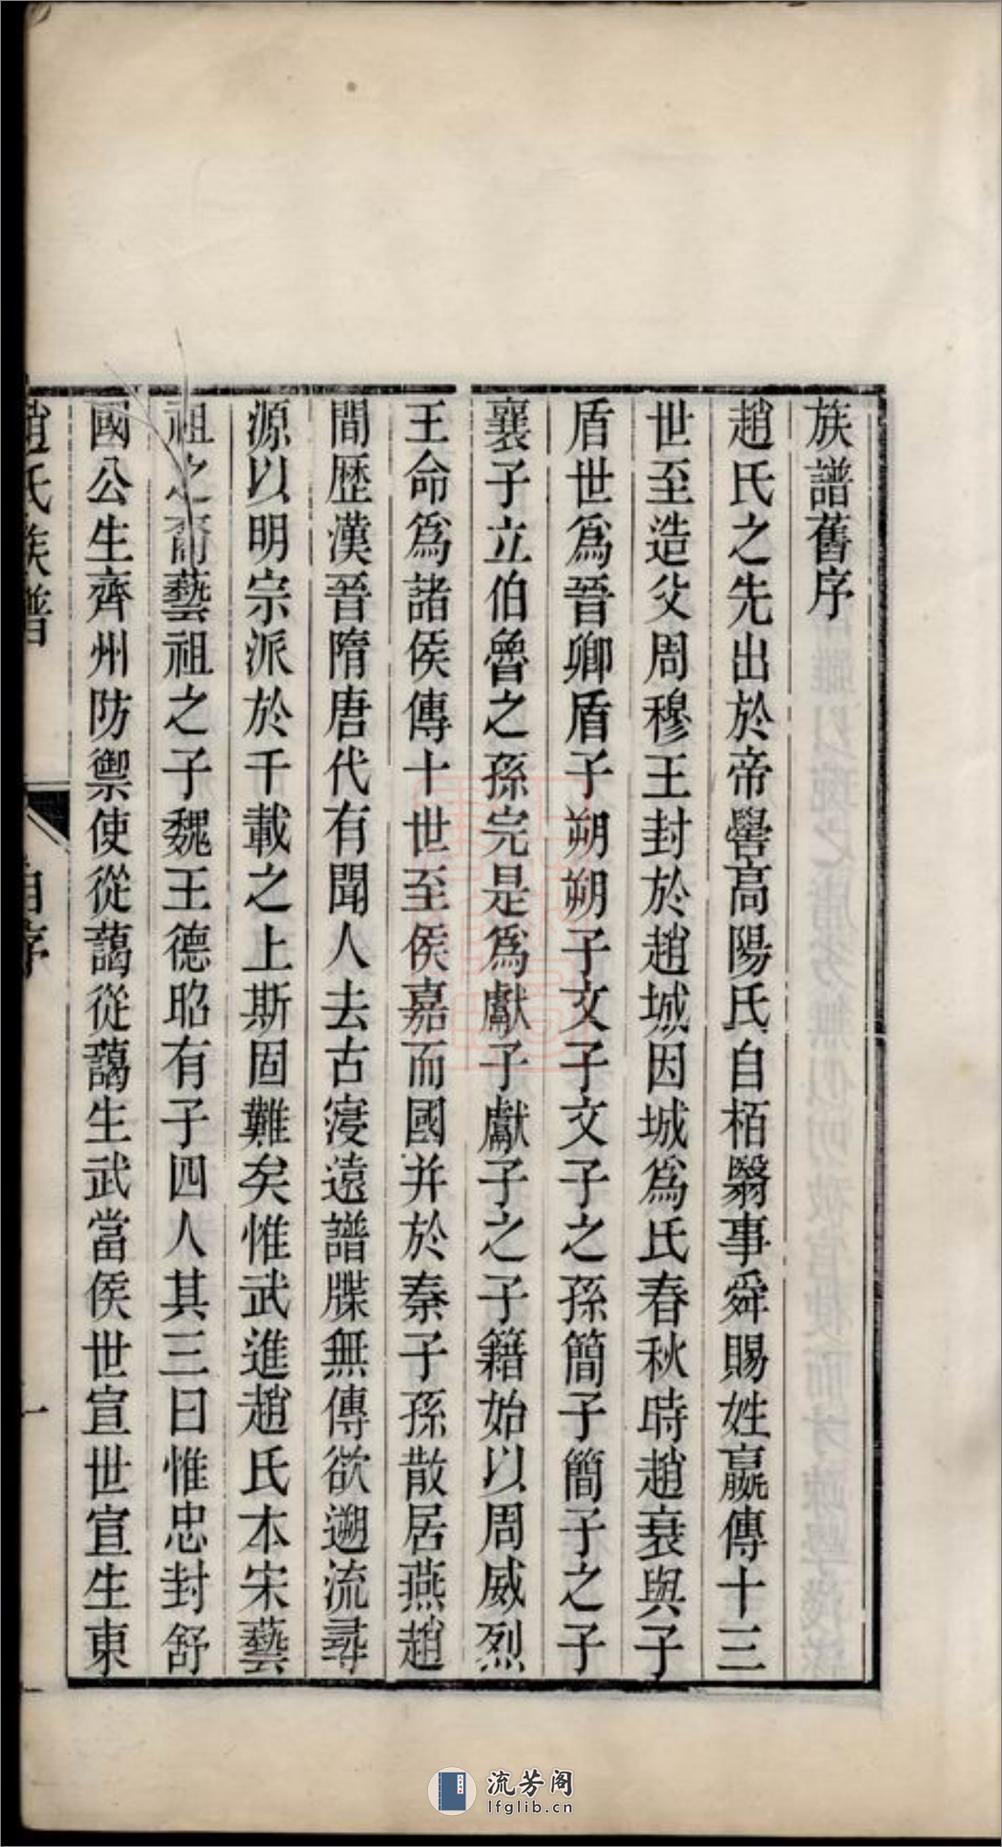 族譜舊序
趙氏之先出於帝嚳高陽氏自栢翳事舜賜姓嬴傳十三
世至造父周穆王封於趙城因城爲氏春秋時趙衰與子
盾世爲晉卿盾子朔朔子文子文子之孫簡子簡子之子
襄子立伯魯之孫完是爲獻子獻子之子籍始以周威烈
王命爲諸侯傳十世至侯嘉而國并於秦子孫散居燕趙
間歷漢晉隋唐代有聞人去古寖遠譜牒無傳欲遡流尋
源以明宗派於千載之上斯固難矣惟武進趙氏本宋藝
祖之裔藝祖之子魏王德昭有子四人其三曰惟忠封舒
國公生齊州防禦使從藹從藹生武當侯世宣世宣生東
趙氏族譜
自序
一
流芳阁
lfglib.cn